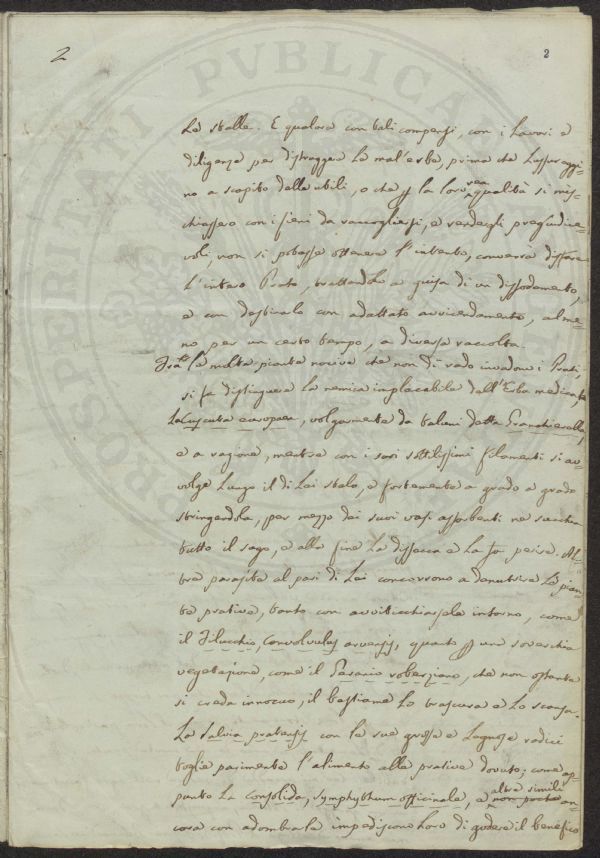 2
2
PROSPERITATI PVBLICAE
le stalle. E qualora con tali compensi, con i lavori e
diligenze per distruggere la mal'erba, prima che disseraggi-
no a scapito delle utili, o che p la loro rea qualità si mis-
chiassero con i fieni da raccogliersi, e renderli pregiudice-
voli, non si potesse ottenere l'intento, converrà disfare
l'intero Prato, trattandolo a guisa di un dissodamento,
e con destinarlo con adattato avvicendamento, alme-
no per un certo tempo, a diversa raccolta.
Fra le molte piante nocive che non di rado invadono i Prati,
si fa distinguere la nemica implacabile dell'Erba medica, la
Cuscuta europaea, volgarmente da taluni detta Granchierella,
e a ragione, mentre con i suoi sottilissimi filamenti si av-
volge lungo il di Lei stelo, e fortemente a grado a grado
stringendola, per mezzo dei suoi vasi assorbenti ne succhia
tutto il sugo, e alla fine la dissecca e la fa perire. Al-
tre parasite al pari di Lei concorrono a denutrire le pian-
te prative, tanto con avviticchiarsele intorno, come
il Filucchio, Convolvulus arvensis, quanto p una soverchia
vegetazione, come il Geranio robertiano, che non ostante
si creda innocuo, il bestiame lo trascura e lo scansa.
La Salvia pratensis con le sue grosse e legnose radici
toglie parimente l'alimento alle prative dovuto; come ap-
punto la Consolida, Symphythum officinale, e altre simili non poche an-
cora con adombrarle impediscono loro di godere il benefico